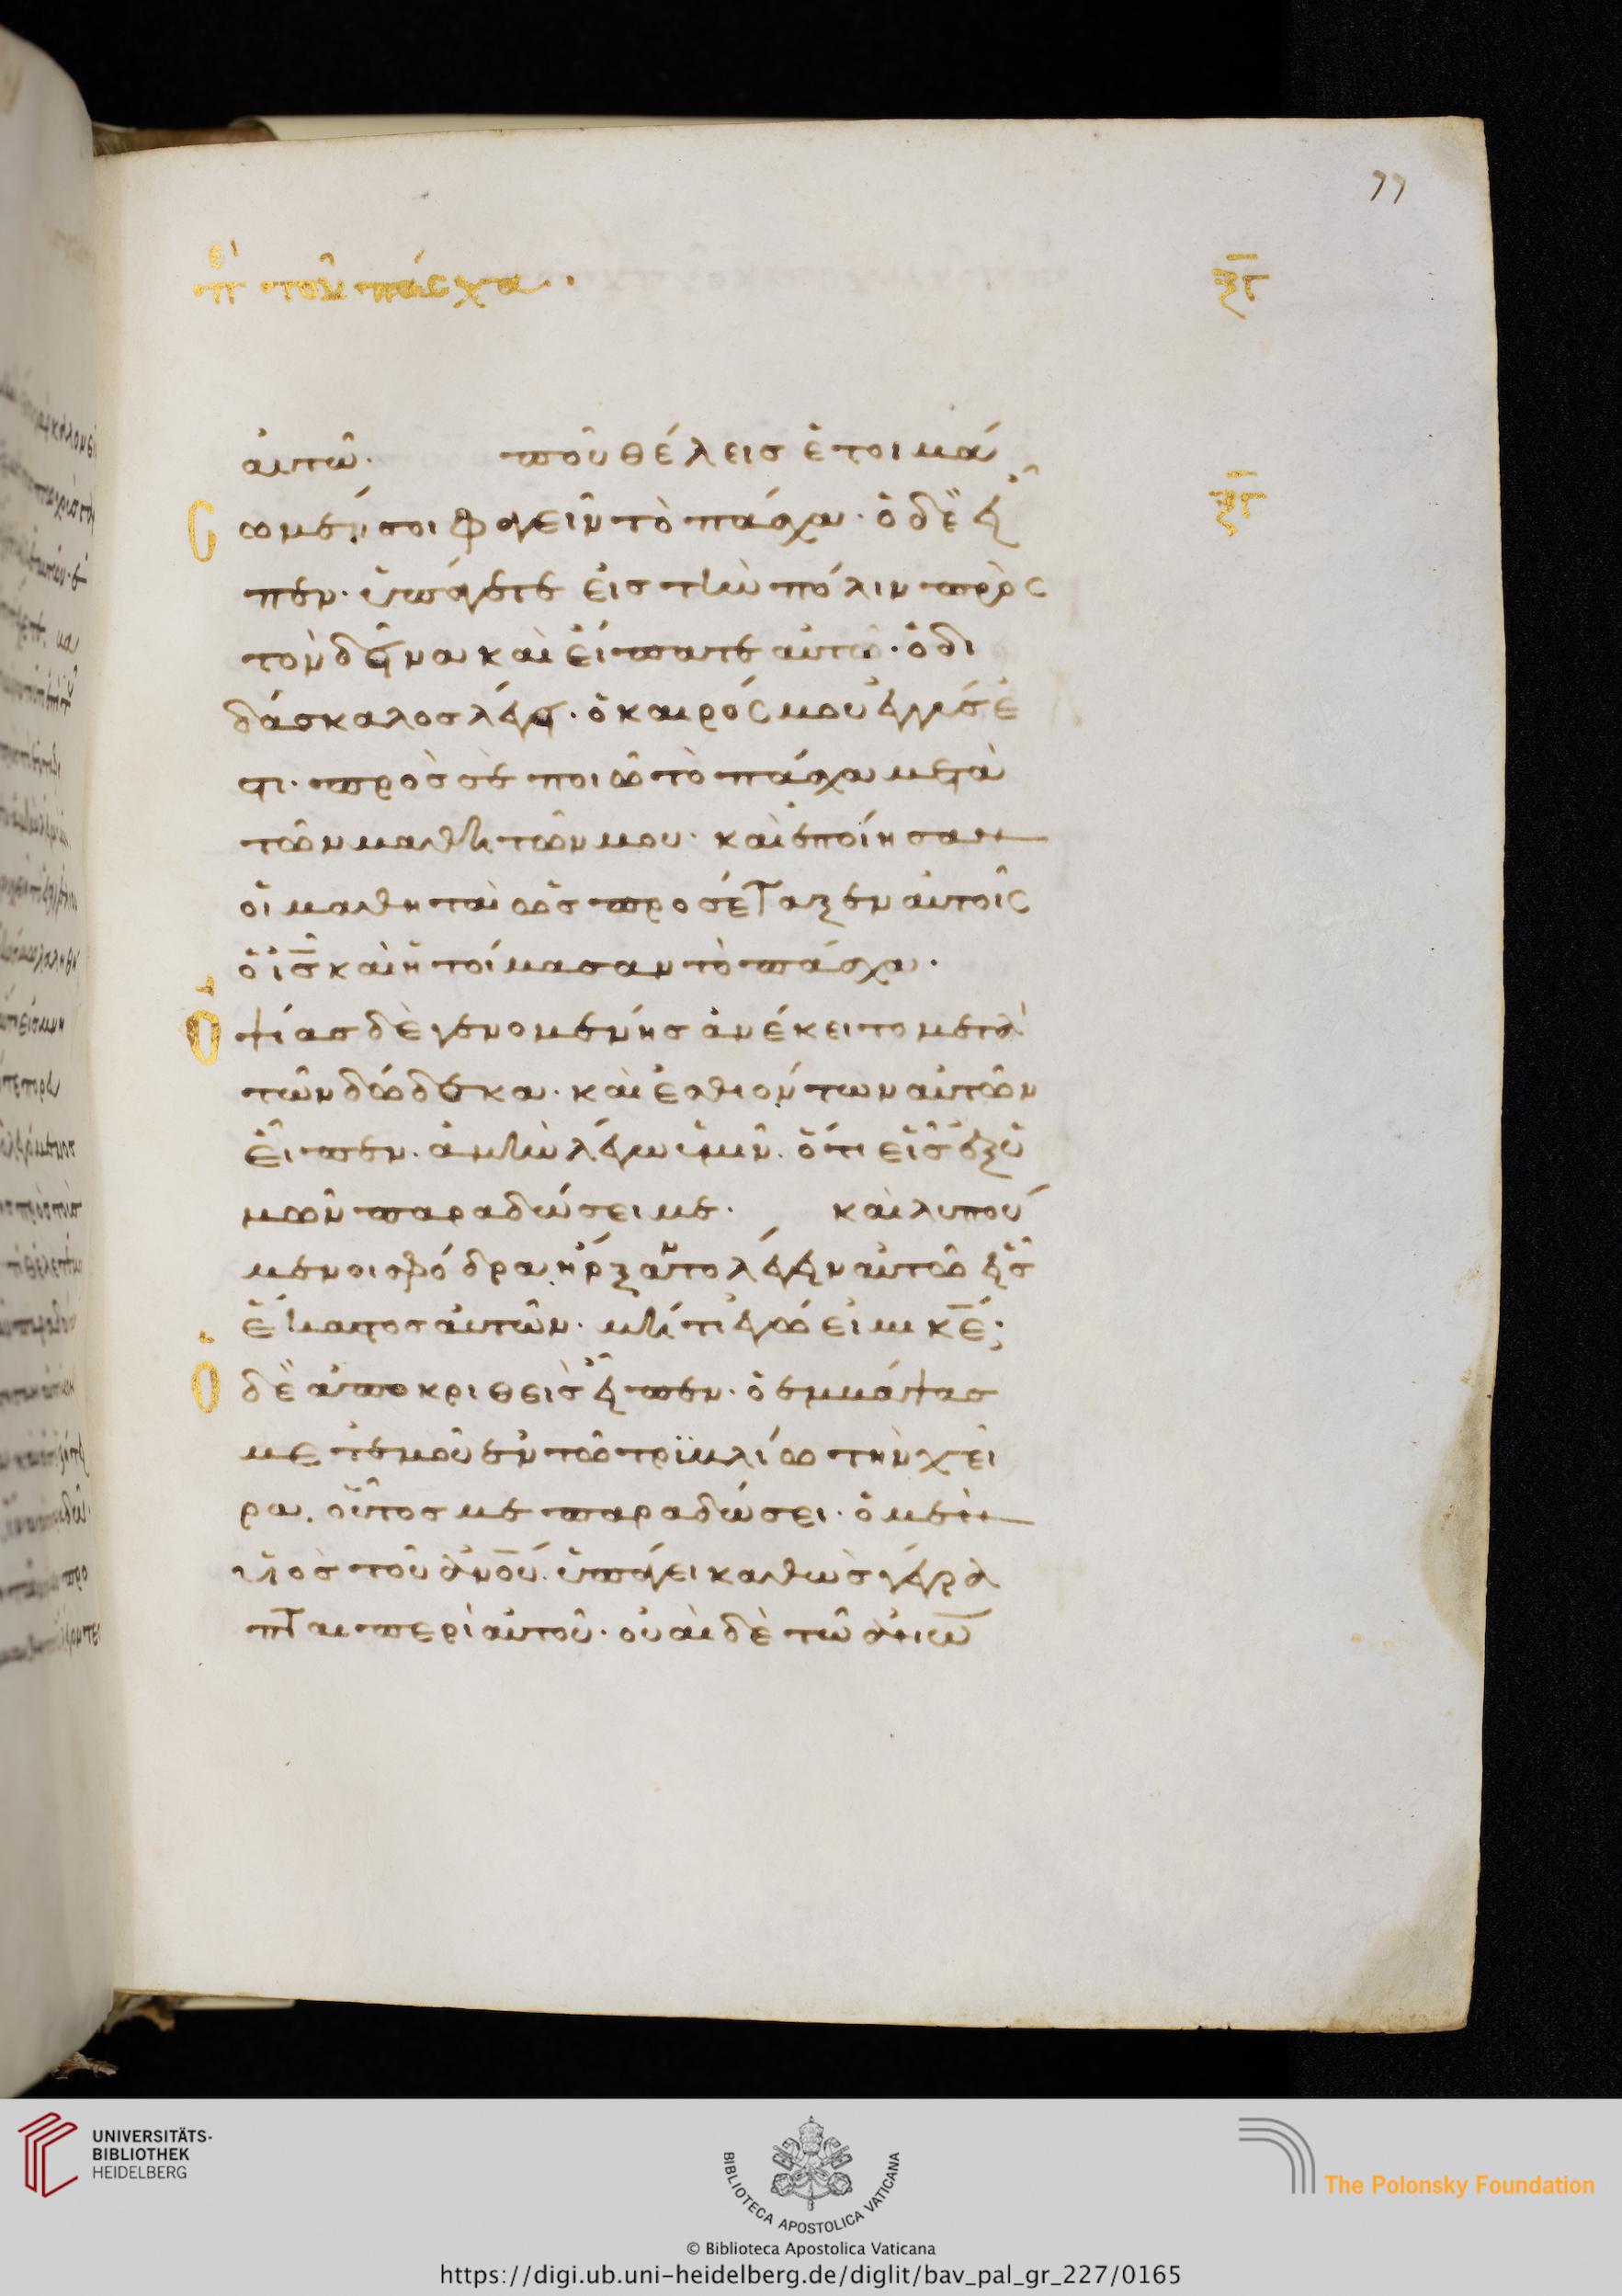 77
περὶ τοῦ πάσχα
ξγ
αὐτῶ. ποῦ θέλεις ἑτοιμά
σωμέν σοι φαγεῖν τὸ πάσχα. ὁ δὲ εἶ
ξγ
πεν. ὑπάγετε εἰς τὴν πόλιν πρὸς
τὸν δεῖνα καὶ εἴπατε αὐτῶ. ὁ δι
δάσκαλος λέγει. ὁ καιρός μου ἐγγύς ἐ
στι. πρὸς σὲ ποιῶ τὸ πάσχα μετὰ
τῶν μαθητῶν μου. καὶ ἐποίησαν
οἱ μαθηταὶ ὡς προσέταξεν αὐτοῖς
ὁ ις καὶ ἡτοίμασαν τὸ πάσχα.
Ὀψίας δὲ γενομένης ἀνέκειτο μετὰ
τῶν δώδεκα. καὶ ἐσθιόντων αὐτῶν
εἶπεν. ἀμὴν λέγω ὑμῖν. ὅτι εἷς ἐξ ὑ
μῶν παραδώσει με. καὶ λυπού
μενοι σφόδρα ἤρξαντο λέγειν αὐτῶ εἷς
ἕκαστος αὐτῶν. μήτι ἐγώ εἰμι κε;
Ὁ δὲ ἀποκριθεὶς εἶπεν. ὁ ἐμβάψας
μετ ἐμοῦ ἐν τῶ τρϋβλίω τὴν χεῖ
ρα. οὗτος με παραδώσει. ὁ μὲν
υἱὸς τοῦ ανου. ὑπάγει καθὼς γέγρα
πται περὶ αὐτοῦ. οὐαὶ δὲ τῶ ανω
UNIVERSITÄTS-
BIBLIOTHEK
HEIDELBERG
BIBLIOTECA APOSTOLICA VATICANA
The Polonsky Foundation
© Biblioteca Apostolica Vaticana
https://digi.ub.uni-heidelberg.de/diglit/bav_pal_gr_227/0165